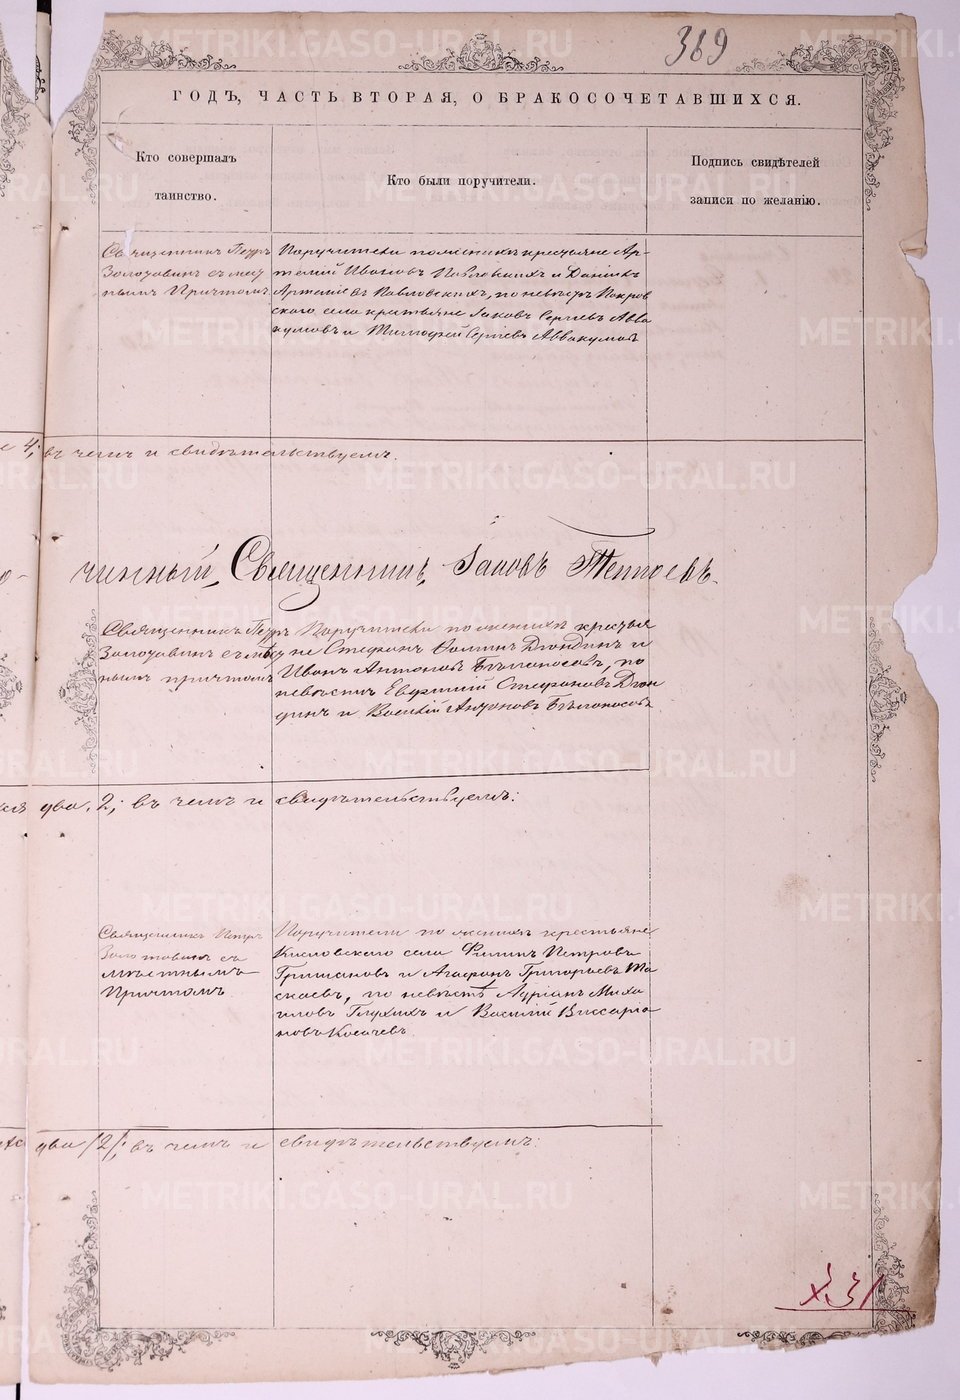 369
ГОДЪ, ЧАСТЬ ВТОРАЯ, О БРАКОСОЧЕТАВШИХСЯ.
Кто совершалъ
таинство.
Кто были поручители.
Подпись свидѣтелей
записи по желанію.
Священникъ Петръ
Золотавинъ съ мест
нымъ Причтомъ
Поручители по женихѣ крестьяне Ар-
темій Ивановъ Павловскихъ и Данiилъ
Артемiевъ Павловскихъ, по невѣстѣ Покров
скаго села крестьяне Іаковъ Сергiевъ Авва
кумовъ и Тимофей Сергiевъ Аввакумовъ
4; въ чемъ и свидѣтельствуемъ.
чинный Священникъ Іаковъ
Священникъ Петръ
Золотавинъ съ мѣст
нымъ причтомъ
Поручители по женихѣ крестья
не Стефанъ Дюндинъ и
Иванъ Антоновъ Бѣлоносовъ, по
невѣстѣ Евфимiй Стефановъ Дюн
динъ и Василiй Антоновъ Бѣлоносовъ
два, 2; въ чемъ и свидѣтельствуемъ:
Священникъ Петръ
Золотавинъ съ
мѣстнымъ
Причтомъ
Поручители по женихѣ крестьяне
Кисловскаго села Филипъ Петровъ
и Агафонъ Григорьевъ
по невѣстѣ Адрiанъ Миха
иловъ Глухихъ и Василiй Виссарiо
новъ Косачевъ
два /2/; въ чемъ и свидѣтельствуемъ:
METRIKI.GASO-URAL.RU